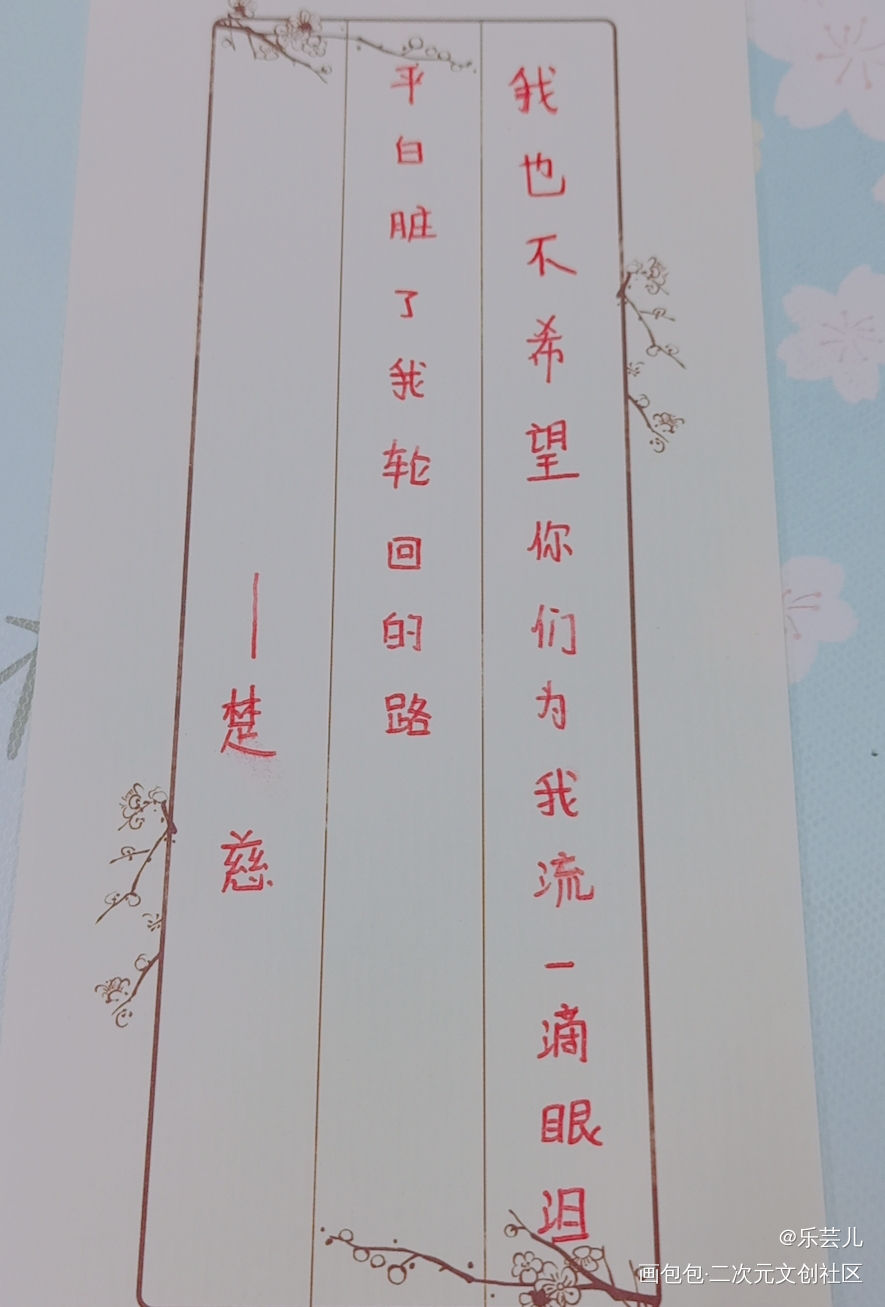 我也不希望你们为我流一滴眼泪
平白脏了我轮回的路
——楚慈
@乐芸儿
画包包·二次元文创社区